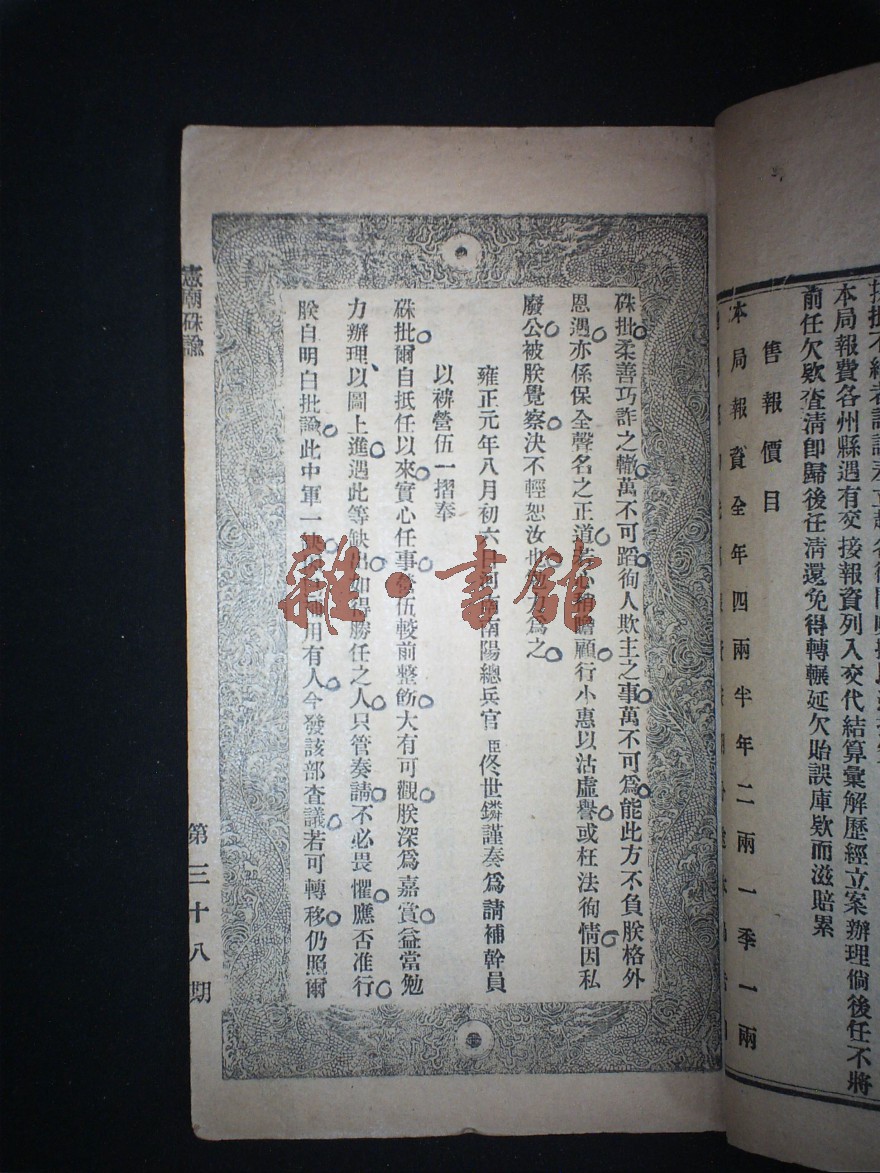 前任欠欵查清卽歸後任淸還免得轉輾延欠貽誤庫欵而滋賠累
本局報費各州縣遇有交接報資列入交代結算彙解歷經立案辦理倘後任不將
售報價目
本局報資全年四兩半年二兩一季一兩
硃批柔善巧詐之轍萬不可蹈徇人欺主之事萬不可爲能此方不負朕格外
恩遇亦係保全聲名之正道若心稍瞻顧行小惠以沽虛譽或枉法徇情因私
廢公被朕覺察決不輕恕汝也勉力爲之
雍正元年八月初六日河南南陽總兵官臣佟世鏻謹奏爲請補幹員
以裨營伍一摺奉
硃批爾自抵任以來實心任事營伍較前整飭大有可觀朕深爲嘉賞益當勉
力辦理以圖上進遇此等缺出如得勝任之人只管奏請不必畏懼應否准行
朕自明白批諭此中軍一缺用有人今發該部查議若可轉移仍照爾
憲廟硃諭
第三十八期
雜·書館